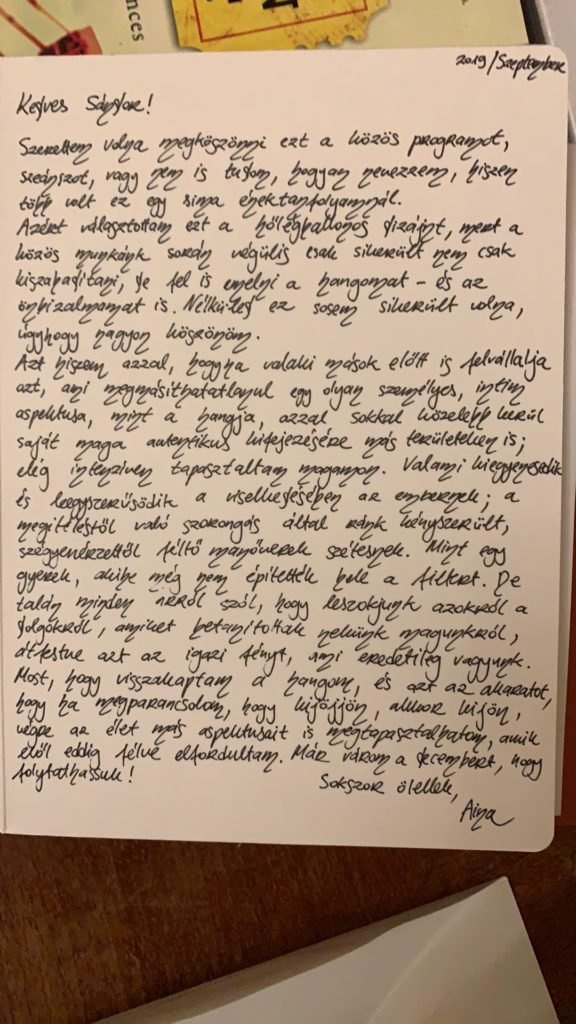 nces
N
2019/Szeptember
Kedves Sándor!
Szerettem volna megköszönni ezt a közös programot,
szeánszot, vagy nem is tudom, hogyan nevezzem, hiszen
több volt ez egy sima énektanfolyamnál.
Azért választottam ezt a hőlégballonos dizájnt, mert a
közös munkánk során végülis csak sikerült nem csak
kiszabadítani, de fel is emelni a hangomat - és az
önbizalmamat is. Nélküled ez sosem sikerült volna,
úgyhogy nagyon köszönöm.
Azt hiszem azzal, hogyha valaki mások előtt is felvállalja
azt, ami megmásíthatatlanul egy olyan személyes, intim
aspektusa, mint a hangja, azzal sokkal közelebb kerül
saját maga autentikus kifejezésére más területeken is;
elég intenzíven tapasztaltam magamon. Valami kiegyenesedik
és leegyszerűsödik a viselkedésében az embernek; a
megítéléstől való szorongás által ránk kényszerült,
szégyenérzettől féltő manőverek szétesnek. Mint egy
gyerek, akibe még nem építették bele a filtert. De
talán minden arról szól, hogy leszokjunk azokról a
dolgokról, amiket betanítottak nekünk magunkról,
átfestve azt az igazi fényt, ami eredetileg vagyunk.
Most, hogy visszakaptam a hangom, és azt az akaratot,
hogy ha megparancsolom, hogy kijöjjön, akkor kijön,
végre az élet más aspektusait is megtapasztalhatom, amik
elől eddig félve elfordultam. Már várom a decembert, hogy
folytathassuk!
Sokszor ölellek,
Aina